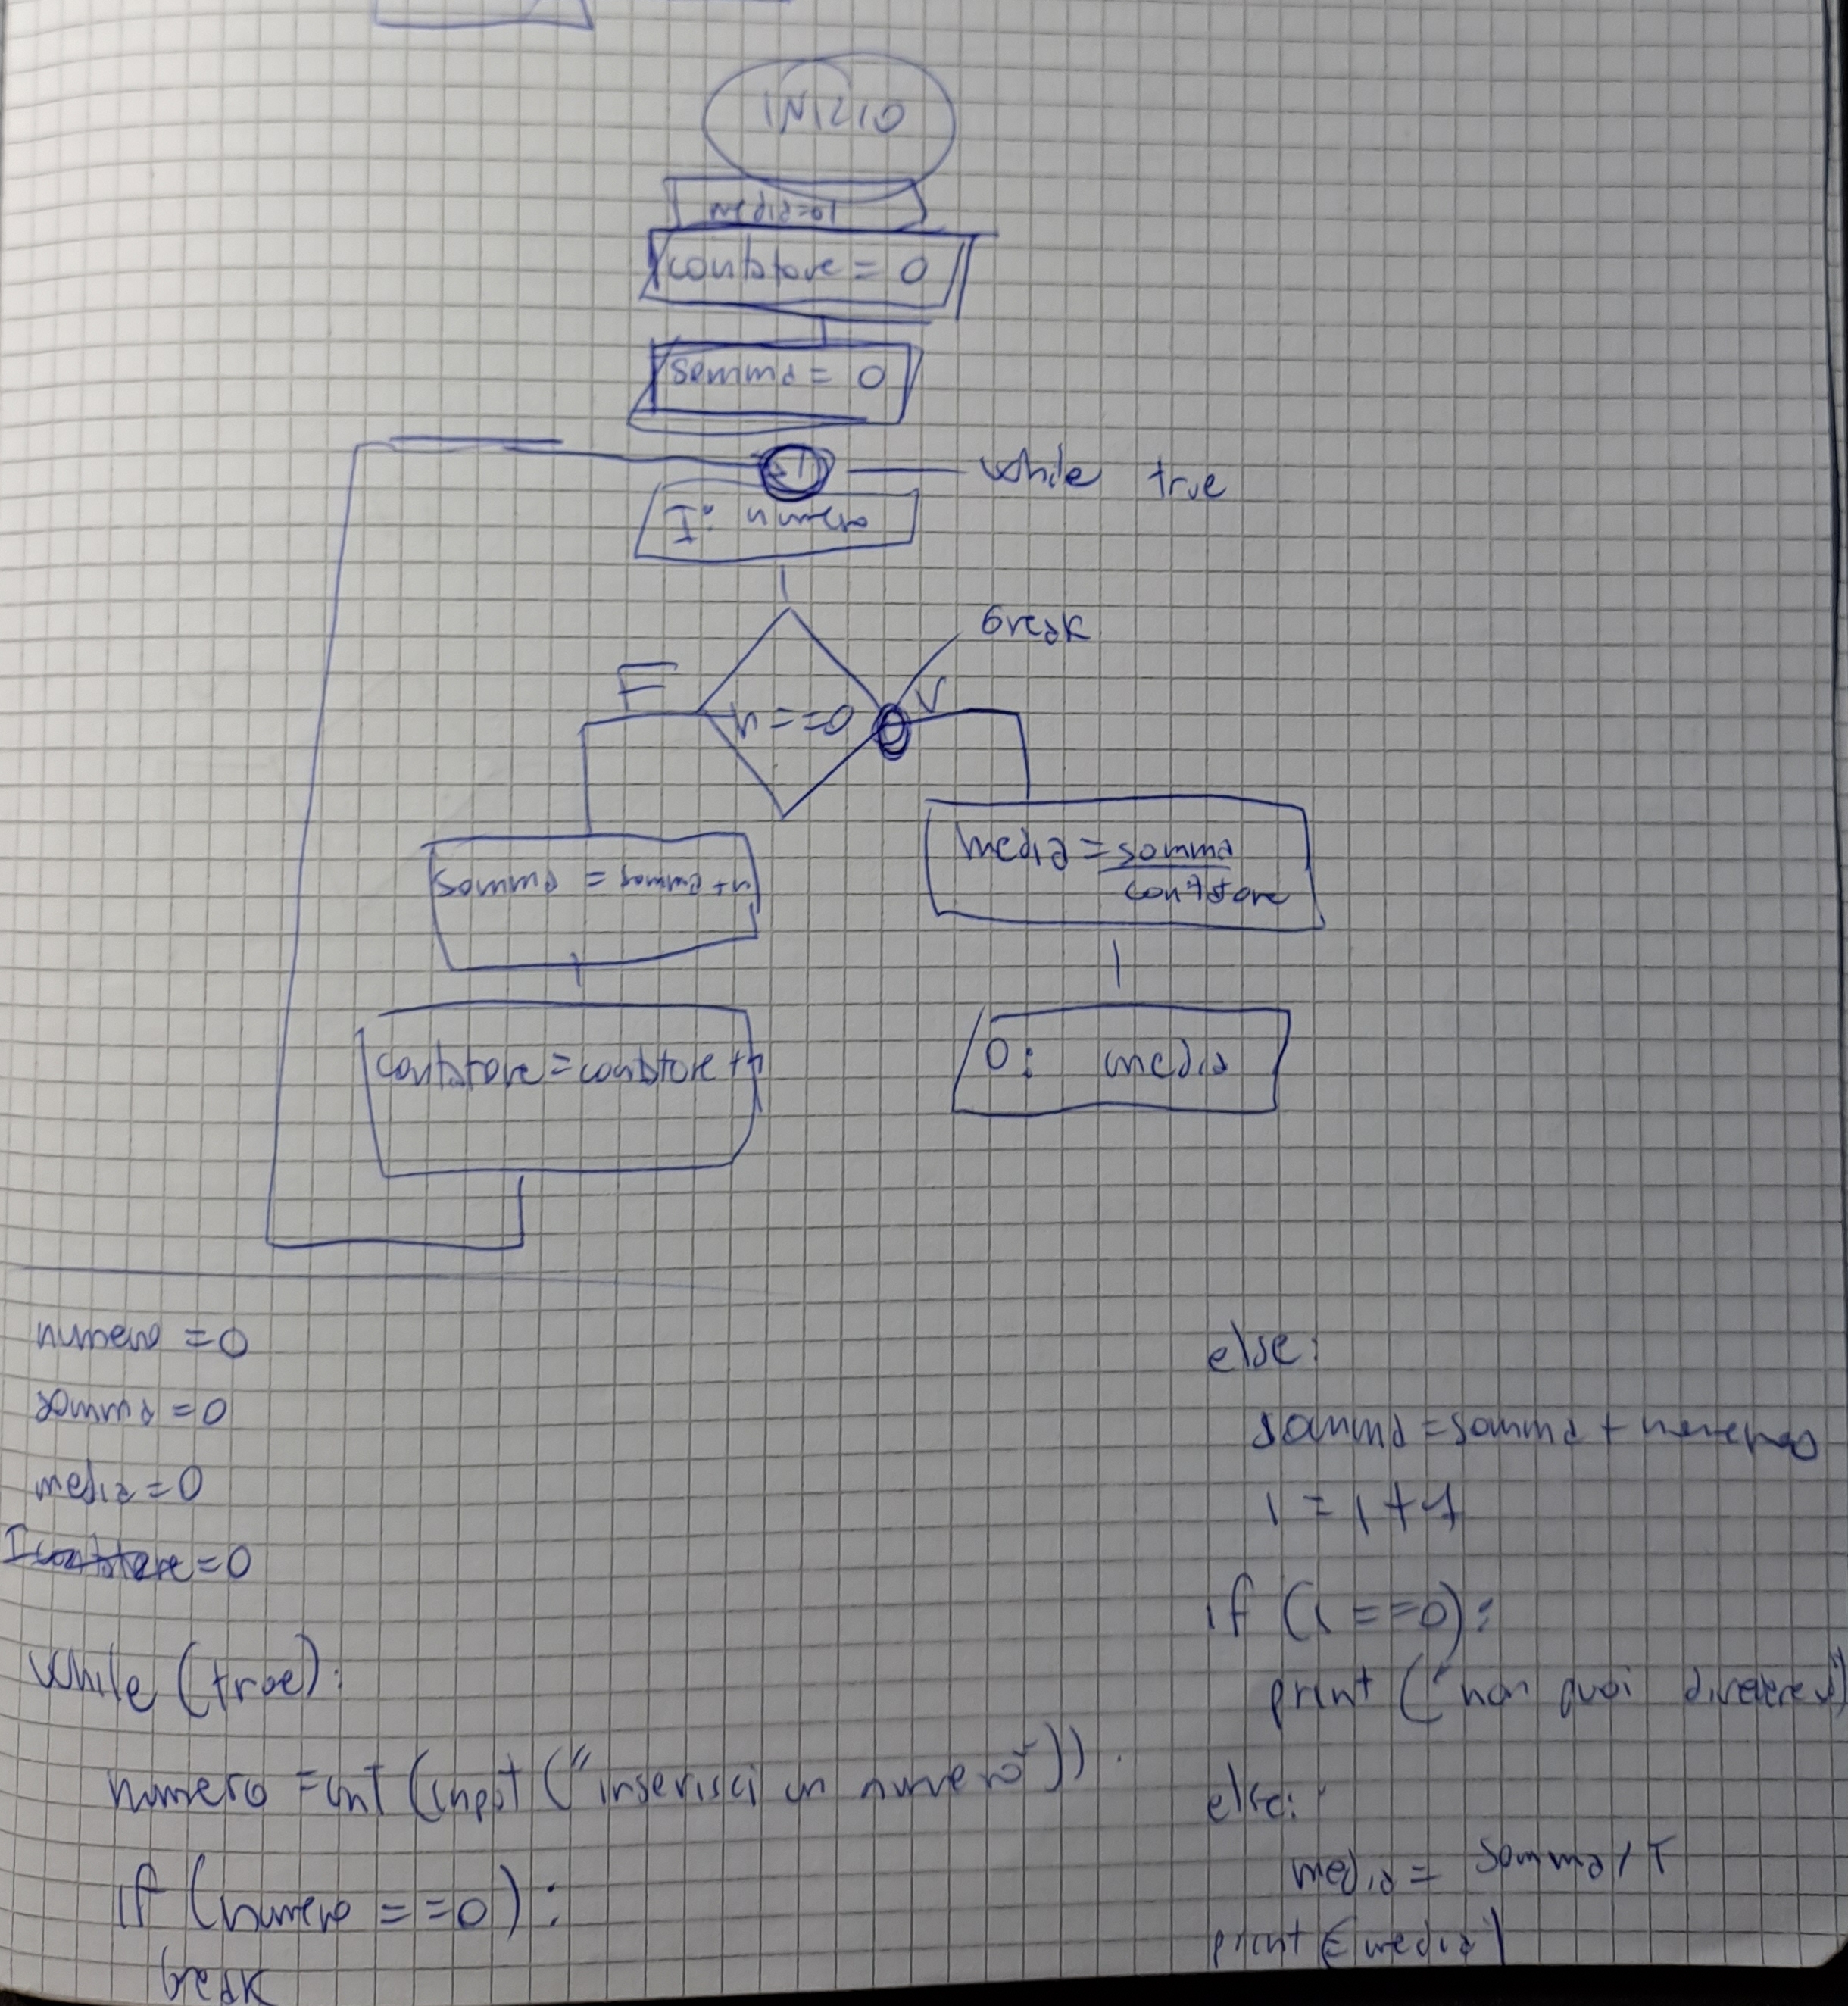 INIZIO
media=0
contatore = 0
somma = 0
while true
I: numero
break
F
V
n==0
somma = somma + n
media = somma
contatore
contatore = contatore +
O: media
numero = 0
somma = 0
media = 0
I contatore = 0
while (true):
numero = int (input ("inserisci un numero"))
if (numero == 0):
break
else:
somma = somma + numero
i = i + 1
if (i == 0):
print ("non puoi
else:
media = somma / I
print (media)